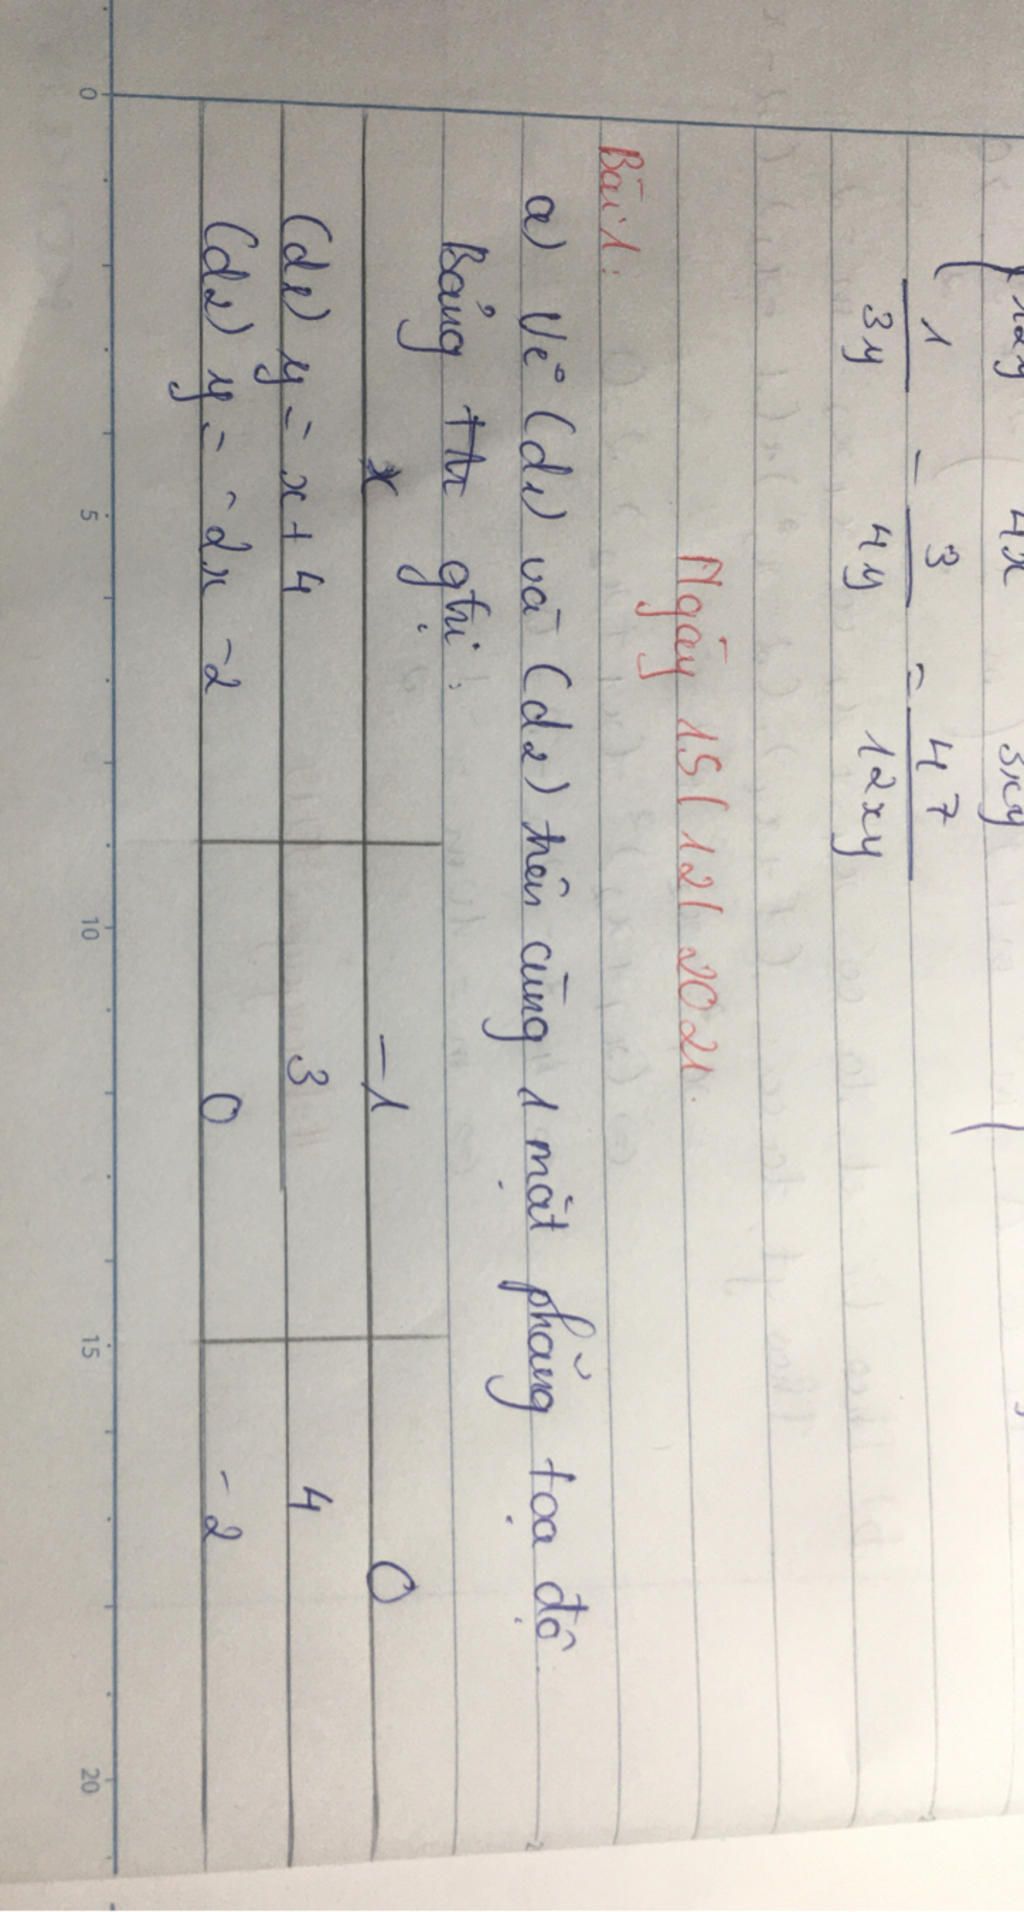 12y 4x 3xy
1/3y - 3/4y = 47/12xy
Ngày 15/12/2021.
Bài 1:
a) Vẽ (d1) và (d2) trên cùng 1 mặt phẳng tọa độ
Bảng gtrị:
x -1 0
(d1) y = x + 4 3 4
(d2) y = -2x -2 0 -2
0 5 10 15 20